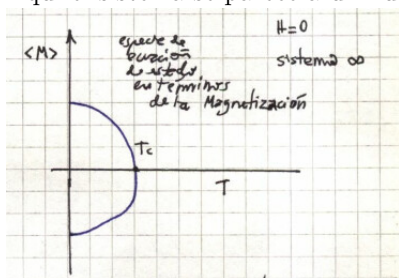 <M>
especie de
ecuación
de estado
en términos
de la Magnetización
H=0
sistema ∞
Tc
T